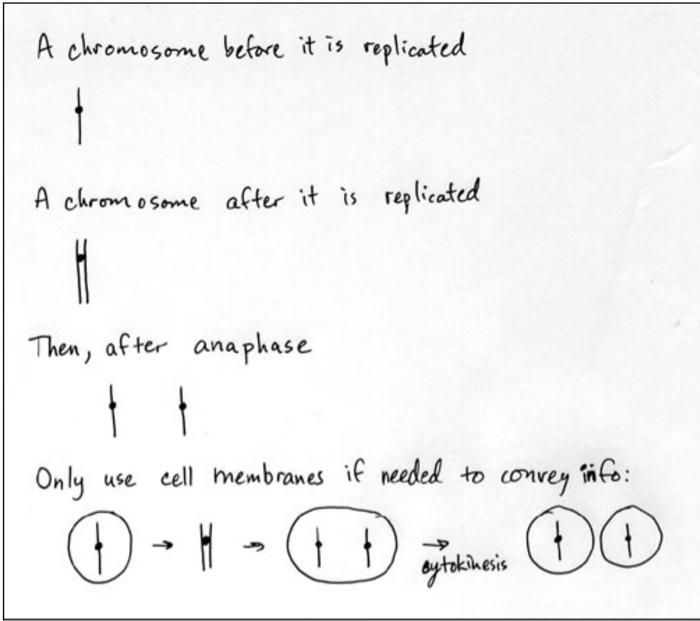 A chromosome before it is replicated
A chromosome after it is replicated
Then, after anaphase
Only use cell membranes if needed to convey info:
cytokinesis